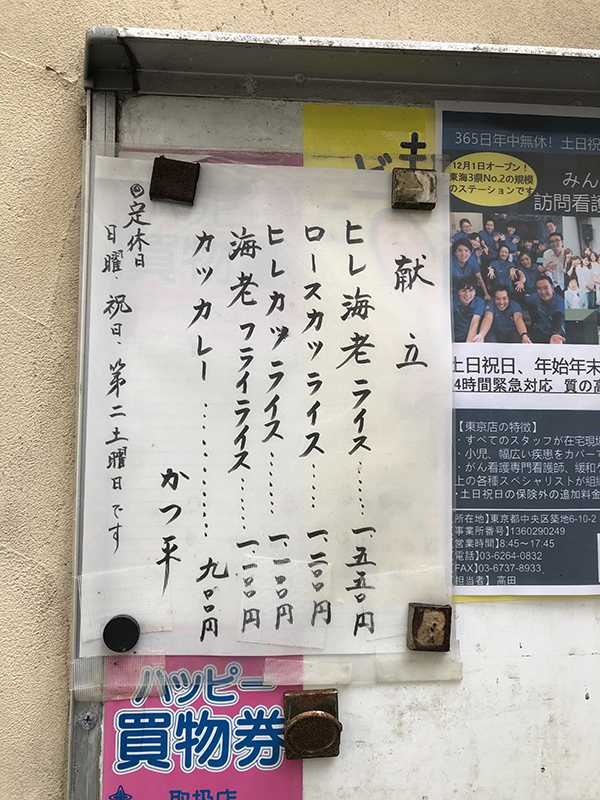 献立
ヒレ海老ライス……一、五五〇円
ロースカツライス……一、二〇〇円
ヒレカツライス……一、二〇〇円
海老フライライス……一、二〇〇円
カツカレー…………九〇〇円
かつ平
◎定休日
日曜、祝日、第二土曜日です
365日年中無休！土日祝
12月1日オープン！
東海3県No.2の規模
のステーションです
みん
訪問看護
土日祝日、年始年末
4時間緊急対応 質の高
【東京店の特徴】
・すべてのスタッフが在宅現場
・小児、幅広い疾患をカバー
・がん看護専門看護師、緩和ケ
上の各種スペシャリストが組
・土日祝日の保険外の追加料金
所在地】東京都中央区築地6-10-2
事業所番号】1360290249
営業時間】8:45〜17:45
電話】03-6264-0832
FAX】03-6737-8933
担当者】高田
ハッピー
買物券
取扱店